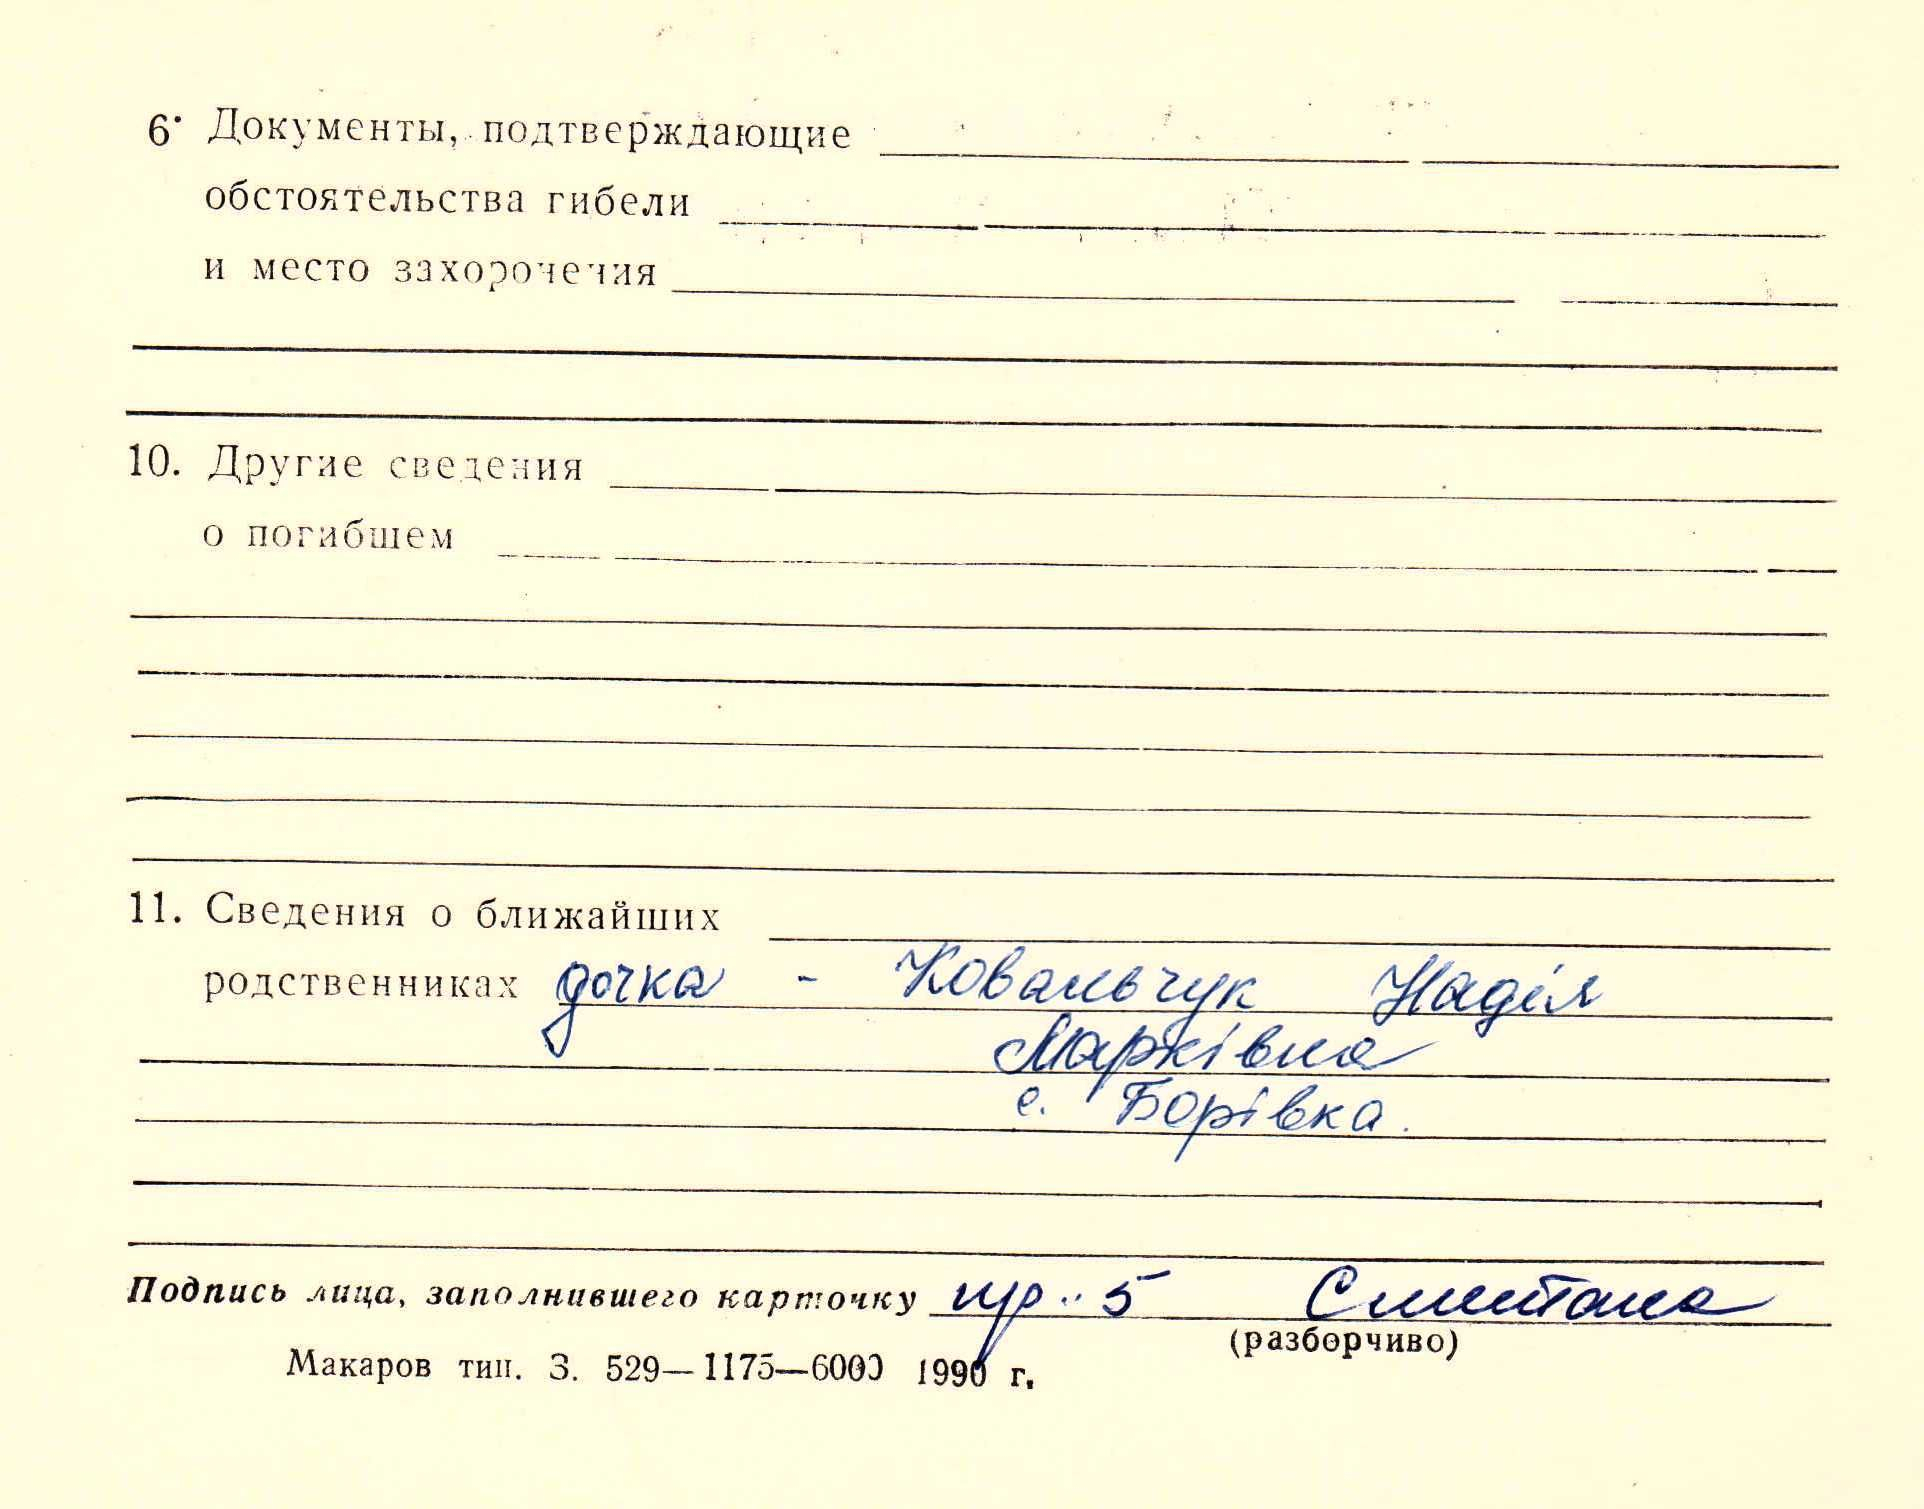 6. Документы, подтверждающие
обстоятельства гибели
и место захоронения
10. Другие сведения
о погибшем
11. Сведения о ближайших
родственниках дочка - Ковальчук Надія
Марківна
с. Борівка.
Подпись лица, заполнившего карточку пр. 5 Сметана
(разборчиво)
Макаров тип. З. 529—1175—6000 1990 г.